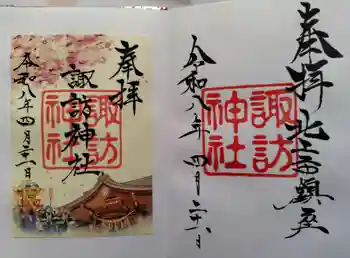 奉拝
北上市鎮座
諏訪
神社
令和八年四月二六日
奉拝
諏訪神社
諏訪
神社
令和八年四月二六日